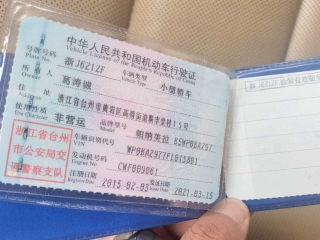 中华人民共和国机动车行驶证
Vehicle License of the People's Republic of China
号牌号码
Plate No.
浙J621ZF
车辆类型
Vehicle Type
小型轿车
所有人
Owner
葛涛诚
住址
Address
浙江省台州市黄岩区
15号
使用性质
Use Character
非营运
品牌型号
Model
帕纳美拉
浙江省台州
市公安局交
通警察支队
车辆识别代号
VIN
发动机号码
Engine No.
CWF009061
注册日期
Register Date
2015-02-03
2021-03-15